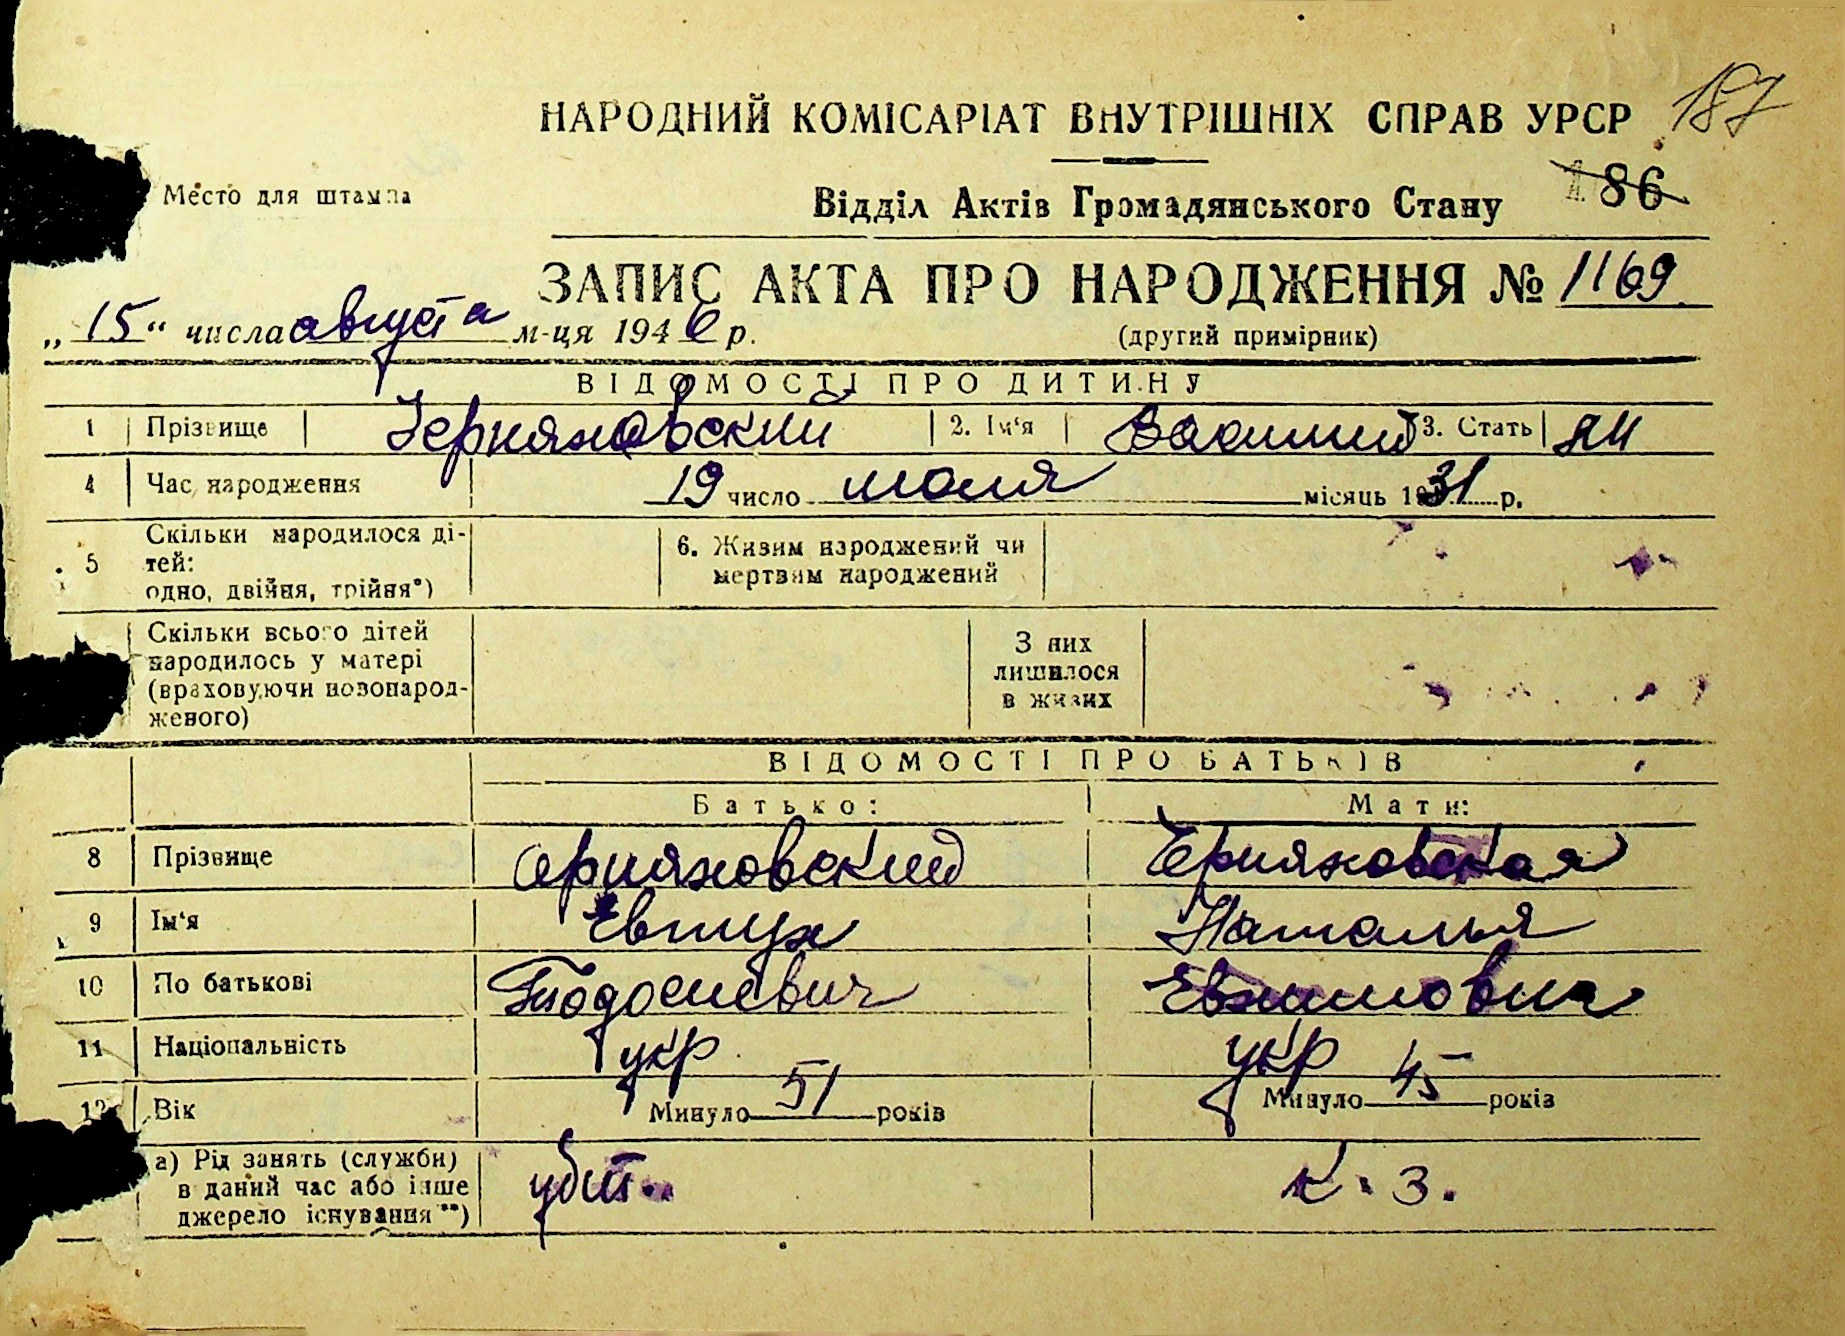 187
НАРОДНИЙ КОМІСАРІАТ ВНУТРІШНІХ СПРАВ УРСР
Место для штампа
Відділ Актів Громадянського Стану 186
ЗАПИС АКТА ПРО НАРОДЖЕННЯ № 1169
„15“ числа августа м-ця 1946 р. (другий примірник)
ВІДОМОСТІ ПРО ДИТИНУ
1 Прізвище Черняховский 2. Ім'я Василий 3. Стать
4 Час народження 19 число июля місяць 1931 р.
5 Скільки народилося ді-
тей:
одно, двійня, трійня*)
6. Живим народжений чи
мертвим народжений
Скільки всього дітей
народилось у матері
(враховуючи новонарод-
женого)
З них
лишилося
в живих
ВІДОМОСТІ ПРО БАТЬКІВ
Батько: Мати:
8 Прізвище Черняховский Черняховская
9 Ім'я Евтух Наталья
10 По батькові Тодосиевич Евхимовна
11 Національність укр укр
12 Вік Минуло 51 років Минуло 45 років
а) Рід занять (служби)
в даний час або інше
джерело існування**)
убит. к. з.